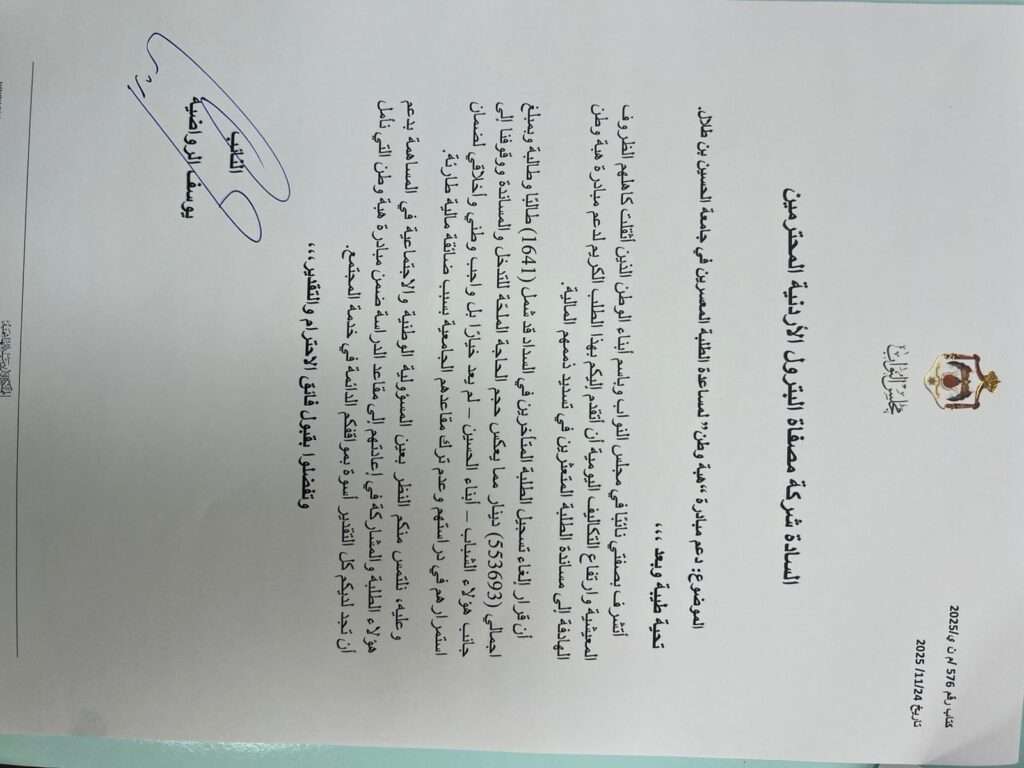 كتاب رقم 576 /م ن ي/2025
تاريخ 2025 /11/24
مجلس النواب
السادة شركة مصفاة البترول الأردنية المحترمين
الموضوع: دعم مبادرة "هبة وطن" لمساعدة الطلبة المعسرين في جامعة الحسين بن طلال.
تحية طيبة وبعد ،،،
أتشرف بصفتي نائبًا في مجلس النواب وباسم أبناء الوطن الذين أثقلت كاهلهم الظروف
المعيشية وارتفاع التكاليف اليومية أن أتقدم إليكم بهذا الطلب الكريم لدعم مبادرة هبة وطن
الهادفة إلى مساندة الطلبة المتعثرين في تسديد ذممهم المالية.
أن قرار إلغاء تسجيل الطلبة المتأخرين في السداد قد شمل (1641) طالبًا وطالبة وبمبلغ
اجمالي (553693) دينار مما يعكس حجم الحاجة الملحّة للتدخل والمساندة ووقوفنا إلى
جانب هؤلاء الشباب – أبناء الحسين – لم يعد خيارًا بل واجب وطني وأخلاقي لضمان
استمرارهم في دراستهم وعدم ترك مقاعدهم الجامعية بسبب ضائقة مالية طارئة.
وعليه، نلتمس منكم النظر بعين المسؤولية الوطنية والاجتماعية في المساهمة بدعم
هؤلاء الطلبة والمشاركة في إعادتهم إلى مقاعد الدراسة ضمن مبادرة هبة وطن التي نأمل
أن تجد لديكم كل التقدير أسوة بمواقفكم الدائمة في خدمة المجتمع.
وتفضلوا بقبول فائق الاحترام والتقدير،،،
النائب
يوسف الرواضية